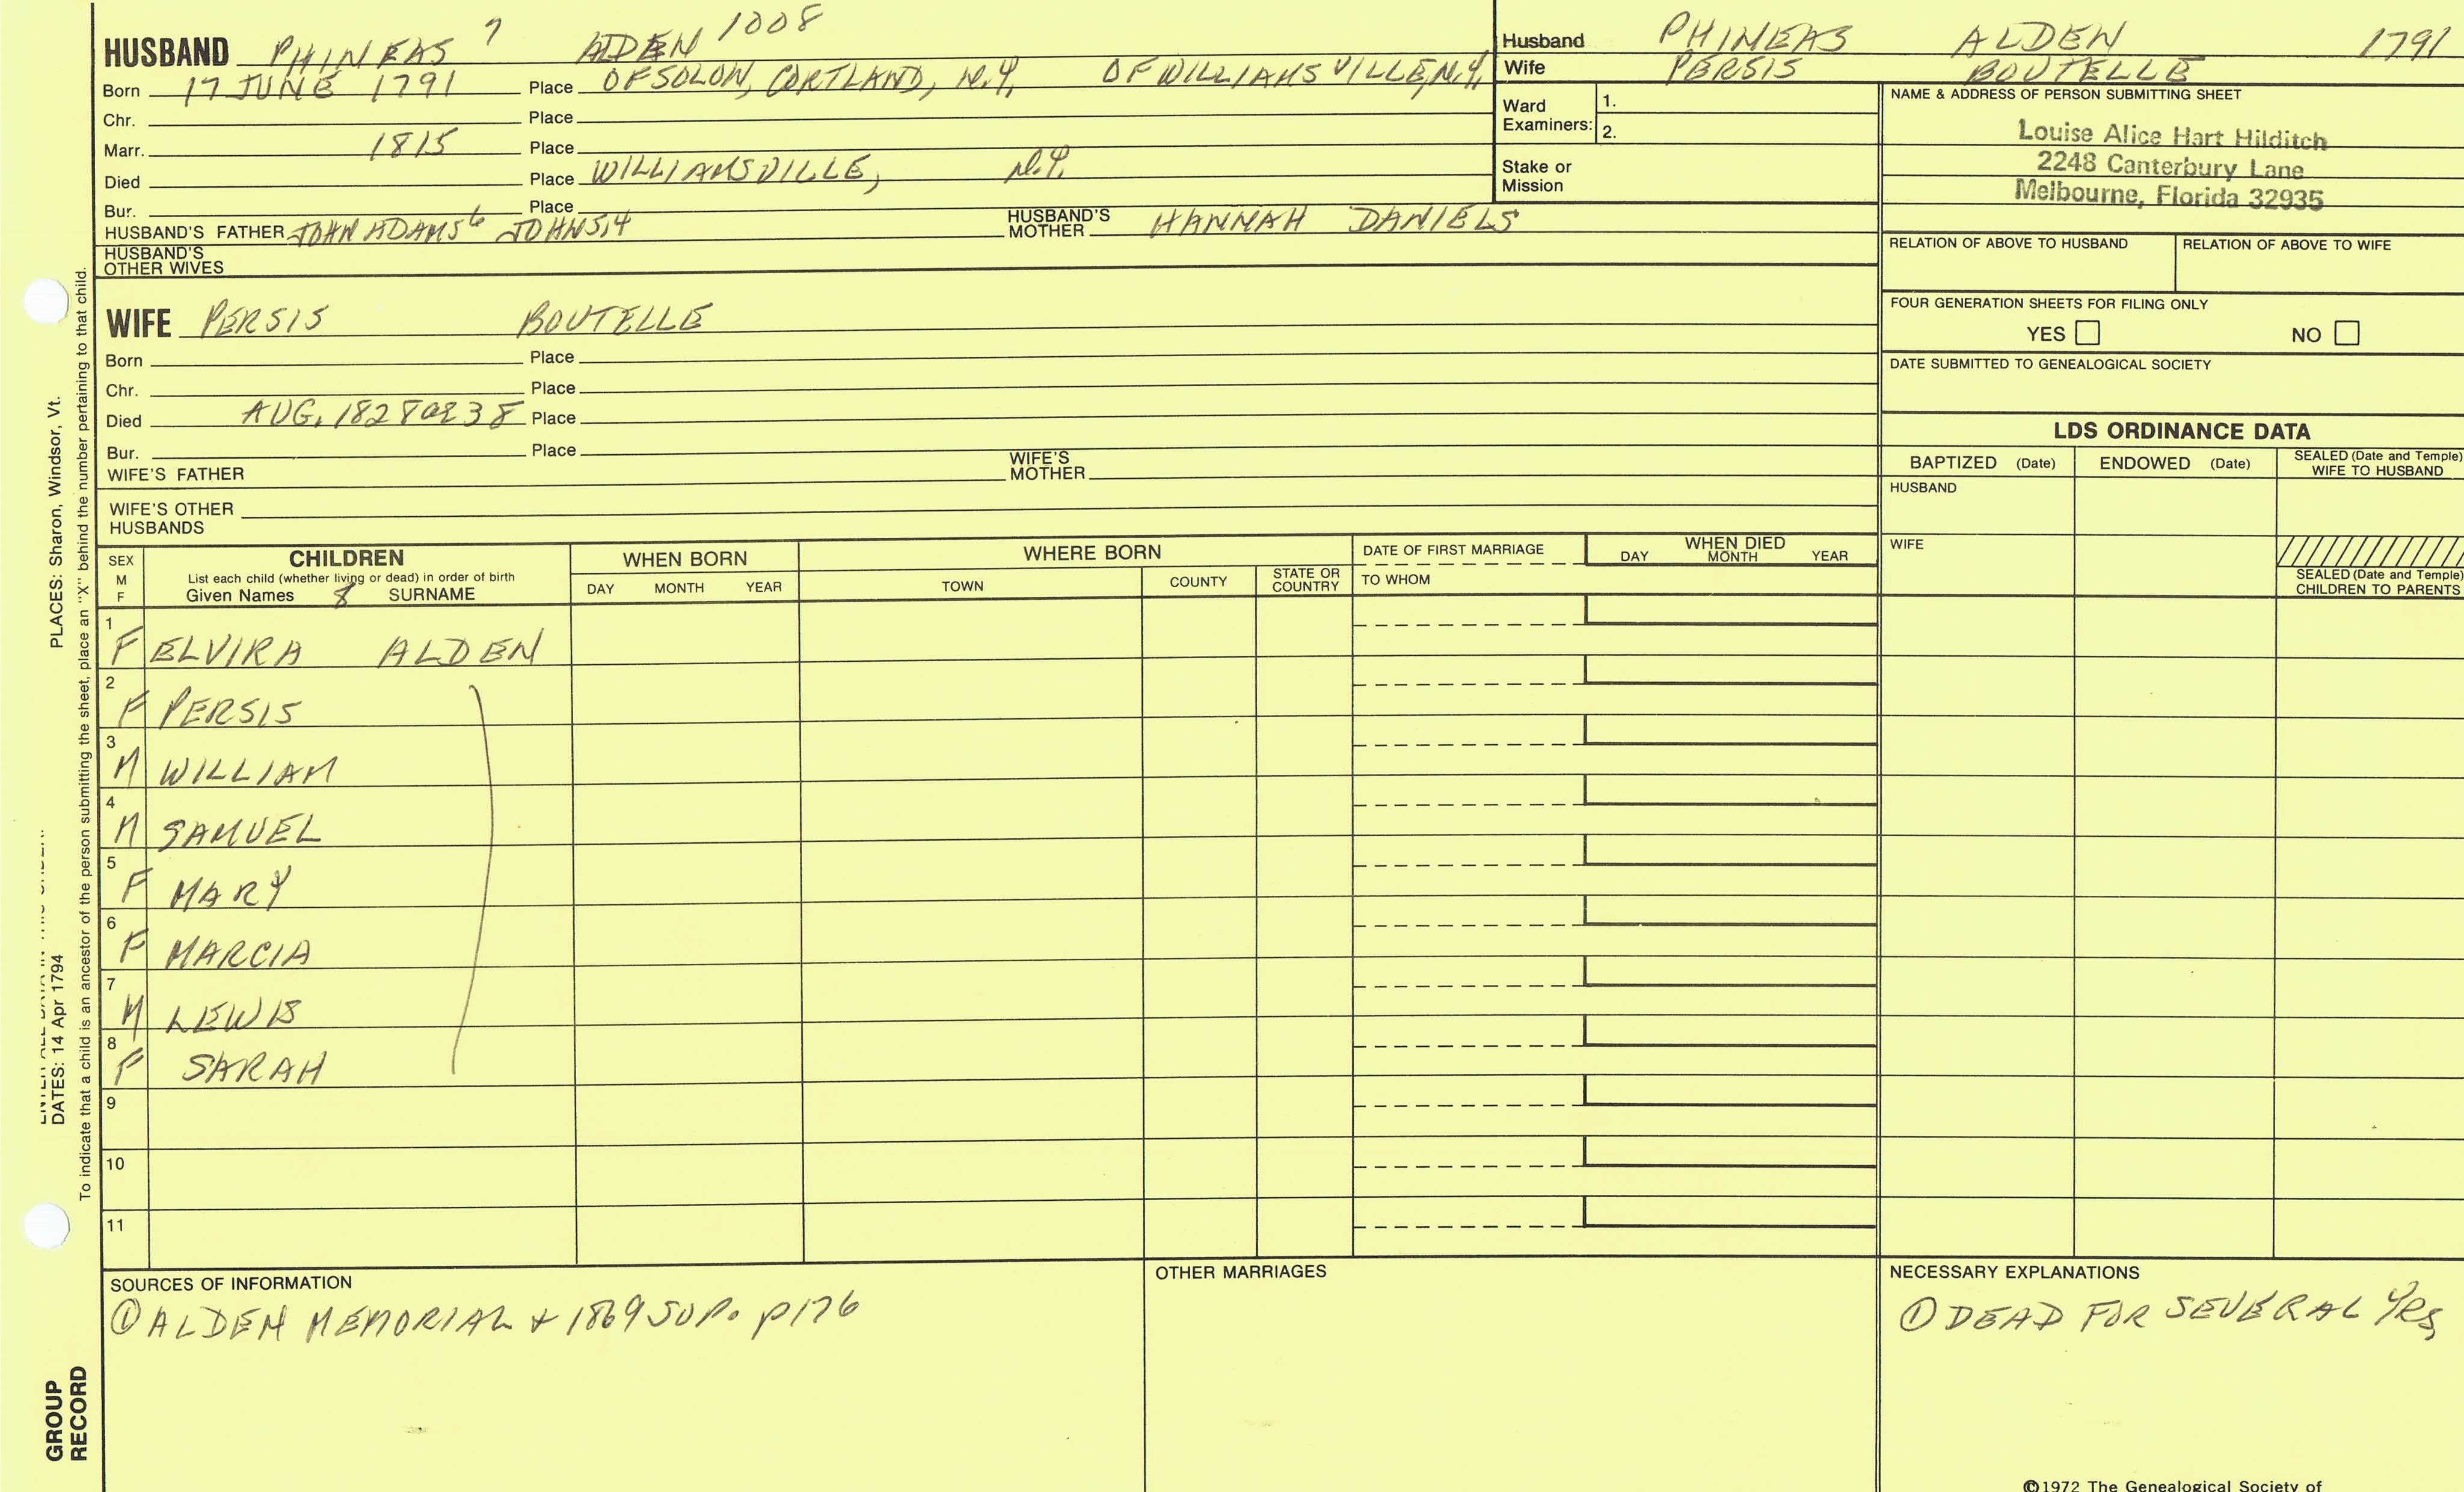 HUSBAND PHINEAS 7 ALDEN 1008
Born 17 JUNE 1791 Place OF SOLON, CORTLAND, N.Y. OF WILLIAMSVILLE, N.Y.
Chr. Place
Marr. 1815 Place
Died Place WILLIAMSVILLE, N.Y.
Bur. Place
HUSBAND'S FATHER JOHN ADAMS6 JOHN5,4 HUSBAND'S MOTHER HANNAH DANIELS
HUSBAND'S OTHER WIVES
Husband PHINEAS ALDEN 1791
Wife PERSIS BOUTELLE
Ward Examiners: 1.
2.
Stake or Mission
NAME & ADDRESS OF PERSON SUBMITTING SHEET
Louise Alice Hart Hilditch
2248 Canterbury Lane
Melbourne, Florida 32935
RELATION OF ABOVE TO HUSBAND RELATION OF ABOVE TO WIFE
FOUR GENERATION SHEETS FOR FILING ONLY
YES NO
DATE SUBMITTED TO GENEALOGICAL SOCIETY
WIFE PERSIS BOUTELLE
Born Place
Chr. Place
Died AUG, 1828 38 Place
Bur. Place
WIFE'S FATHER WIFE'S MOTHER
WIFE'S OTHER HUSBANDS
LDS ORDINANCE DATA
BAPTIZED (Date) ENDOWED (Date) SEALED (Date and Temple) WIFE TO HUSBAND
HUSBAND
WIFE
SEALED (Date and Temple) CHILDREN TO PARENTS
SEX M F
CHILDREN
List each child (whether living or dead) in order of birth
Given Names 8 SURNAME
WHEN BORN
DAY MONTH YEAR
WHERE BORN
TOWN COUNTY STATE OR COUNTRY
DATE OF FIRST MARRIAGE
TO WHOM
WHEN DIED
DAY MONTH YEAR
1 F ELVIRA ALDEN
2 F PERSIS
3 M WILLIAM
4 M SAMUEL
5 F MARY
6 F MARCIA
7 M LEWIS
8 F SARAH
9
10
11
SOURCES OF INFORMATION
① ALDEN MEMORIAL + 1869 SUP. p176
OTHER MARRIAGES
NECESSARY EXPLANATIONS
① DEAD FOR SEVERAL YRS
©1972 The Genealogical Society of
PLACES: Sharon, Windsor, Vt.
DATES: 14 Apr 1794
To indicate that a child is an ancestor of the person submitting the sheet, place an "X" behind the number pertaining to that child.
GROUP
RECORD